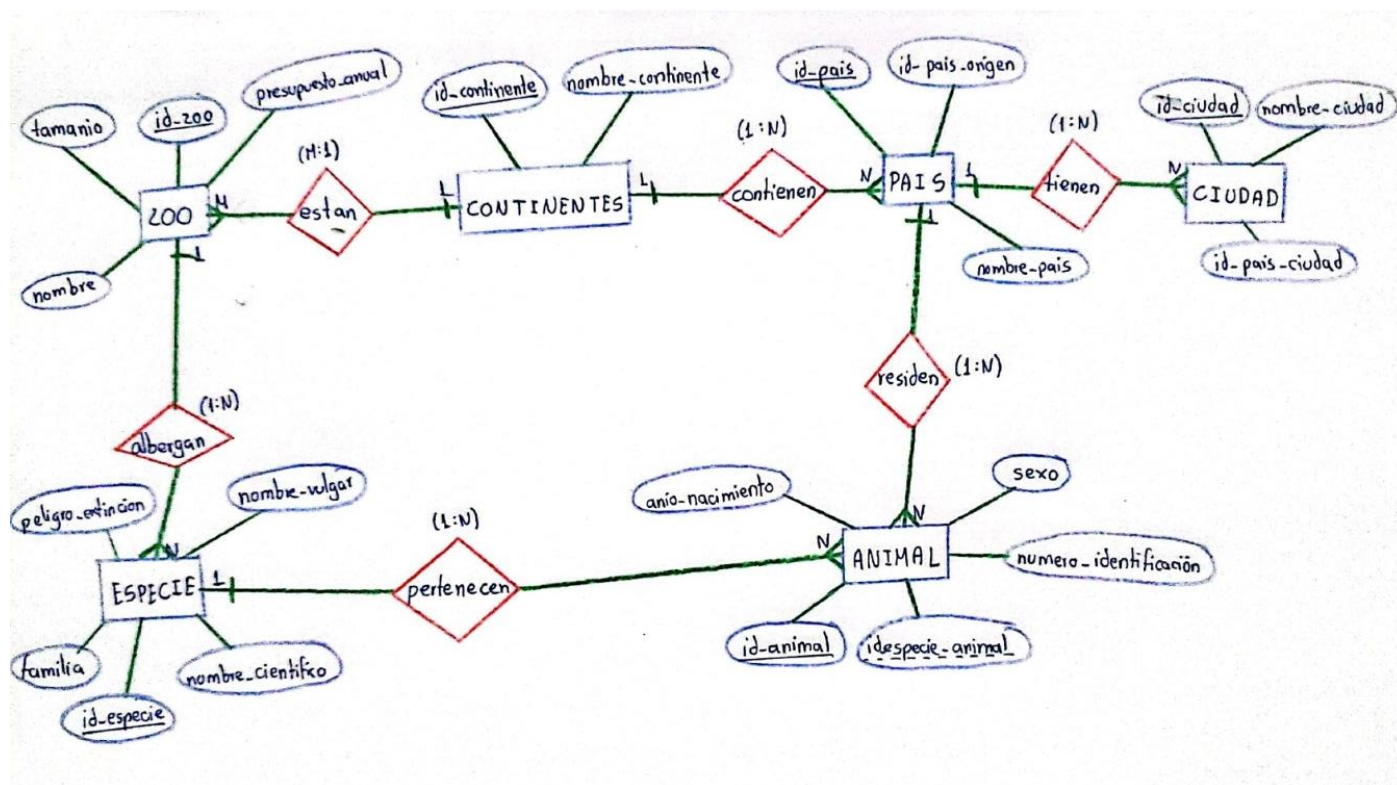 tamanio
id_zoo
presupuesto_anual
nombre
ZOO
M
1
(M:1)
estan
1
id_continente
nombre_continente
CONTINENTES
1
(1:N)
contienen
N
id_pais
id_pais_origen
PAIS
1
1
nombre_pais
(1:N)
tienen
N
id_ciudad
nombre_ciudad
CIUDAD
id_pais_ciudad
(1:N)
albergan
N
residen
(1:N)
N
peligro_extincion
nombre_vulgar
ESPECIE
1
familia
id_especie
nombre_cientifico
(1:N)
pertenecen
N
anio_nacimiento
sexo
ANIMAL
numero_identificación
id_animal
idespecie_animal